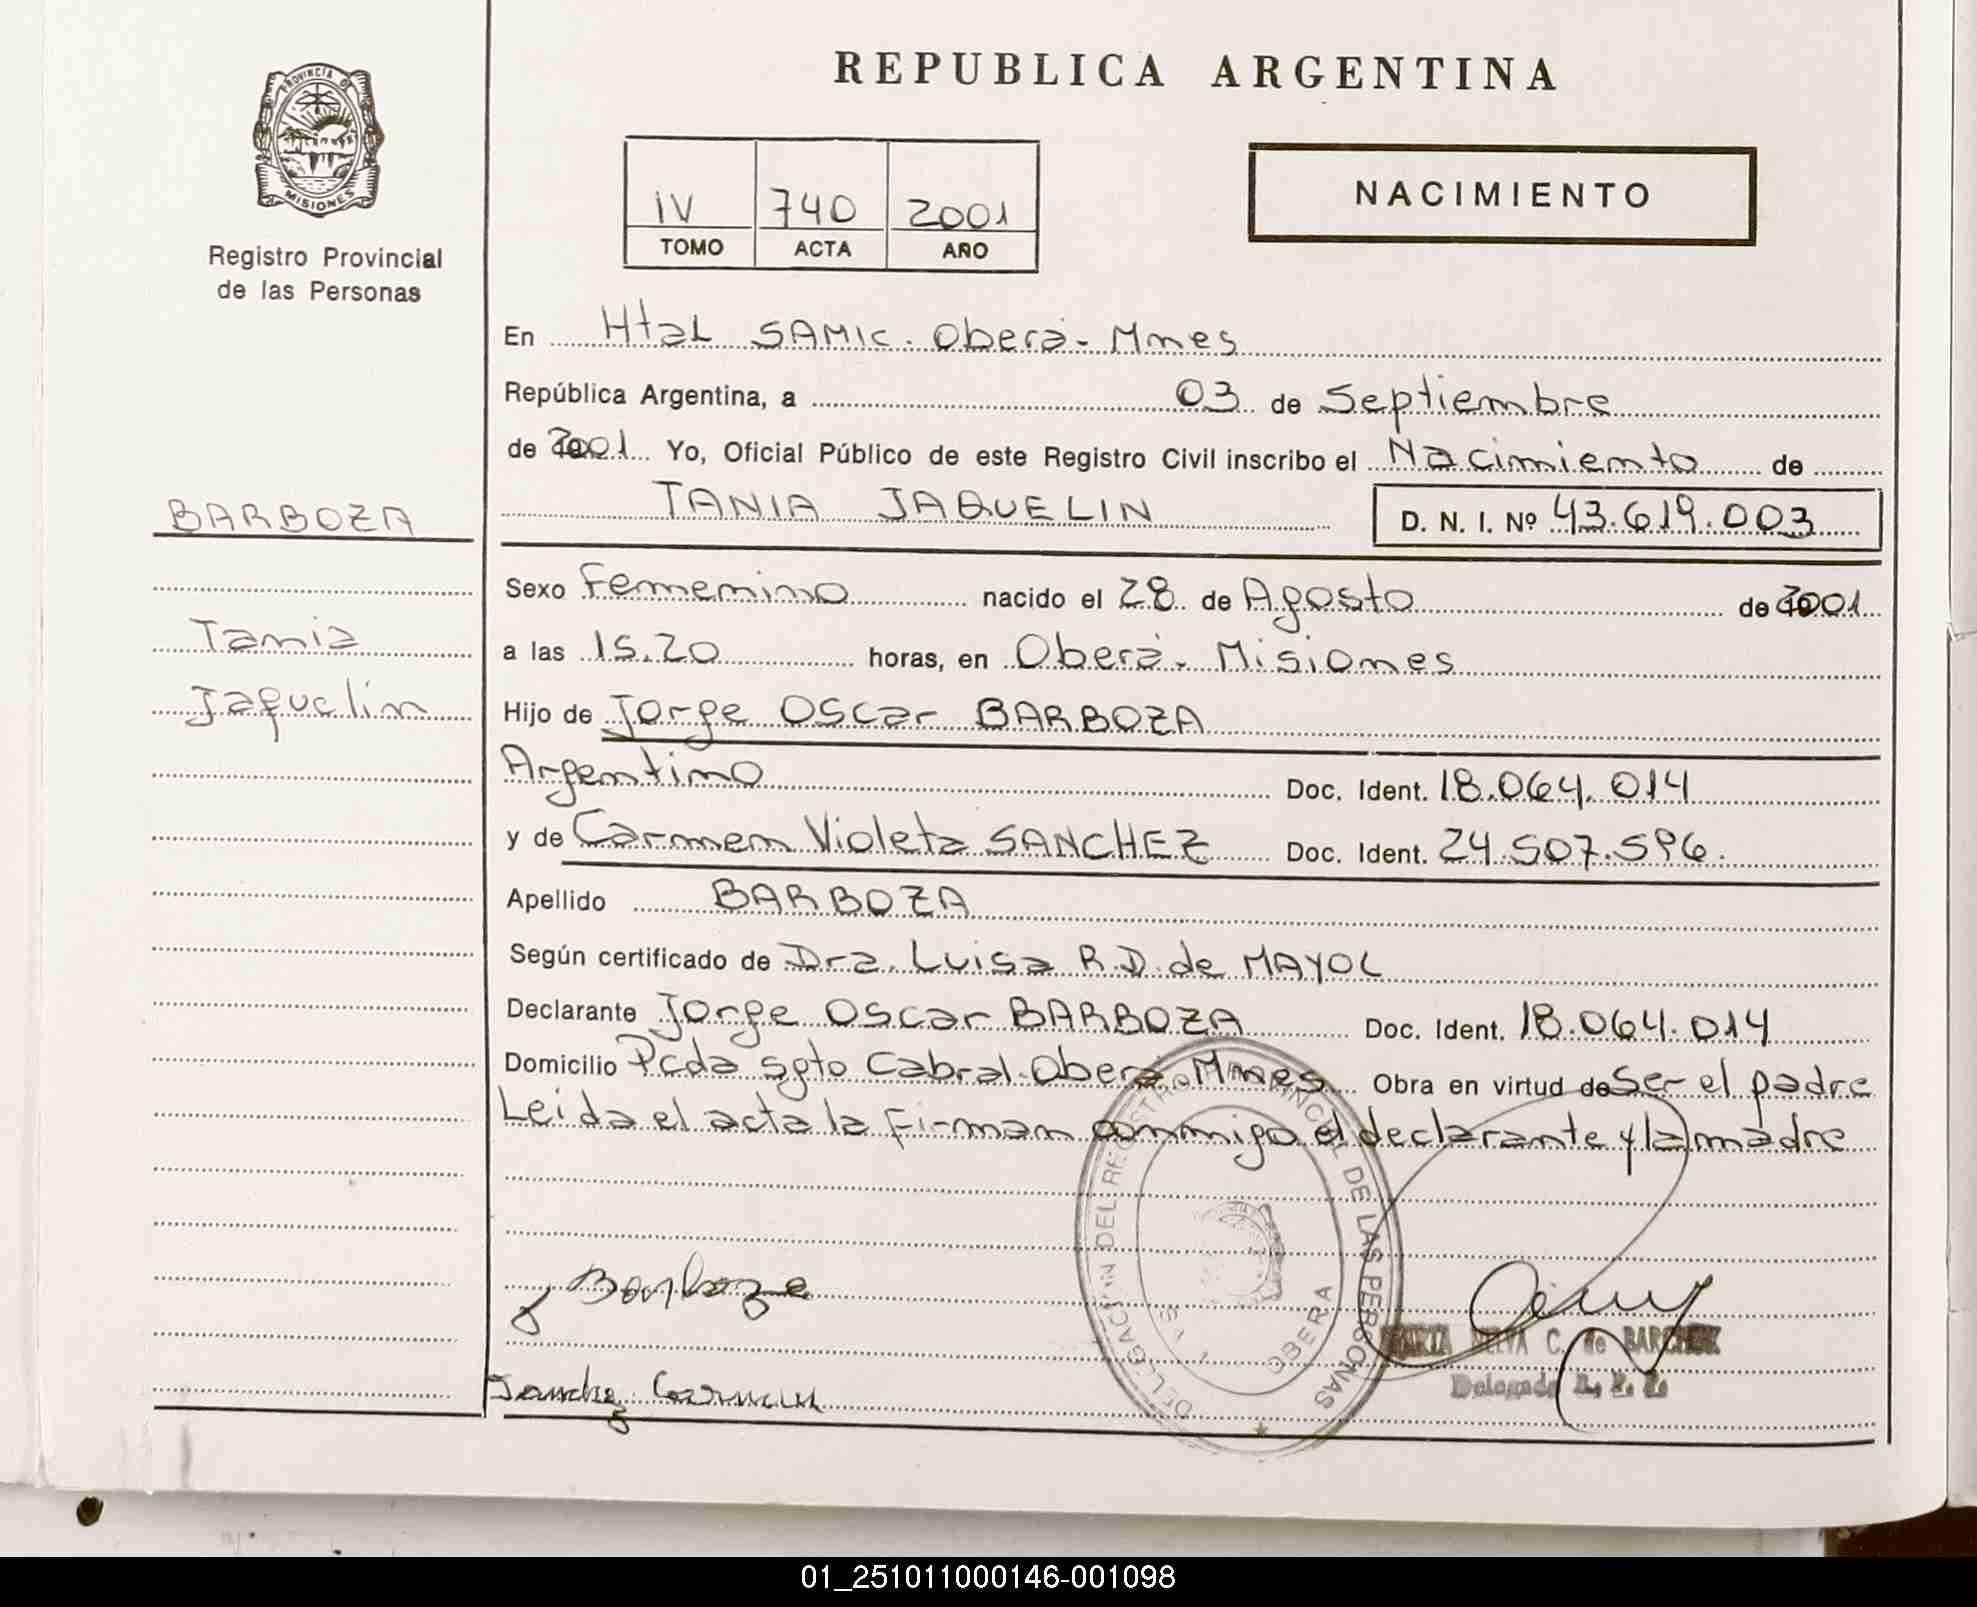 REPUBLICA ARGENTINA
PROVINCIA DE
MISIONES
Registro Provincial
de las Personas
IV 740 2001
TOMO ACTA AÑO
NACIMIENTO
En Htal SAMIC. Oberá- Mnes
República Argentina, a 03 de Septiembre
de 2001 Yo, Oficial Público de este Registro Civil inscribo el Nacimiento de
TANIA JAQUELIN D. N. I. Nº 43.619.003
BARBOZA
Tania
Jaquelin
Sexo Femenino nacido el 28 de Agosto de 2001
a las 15.20 horas, en Oberá. Misiones
Hijo de Jorge Oscar BARBOZA
Argentino Doc. Ident. 18.064.014
y de Carmen Violeta SANCHEZ Doc. Ident. 24.507.596.
Apellido BARBOZA
Según certificado de Dra. Luisa R.D. de MAYOL
Declarante Jorge Oscar BARBOZA Doc. Ident. 18.064.014
Domicilio Pcda Sgto Cabral. Oberá Mnes Obra en virtud de Ser el padre
Leida el acta la firman conmigo el declarante y la madre
DELEGACION DEL REGISTRO PROVINCIAL DE LAS PERSONAS
OBERA
Barboza
C. de
Delegada
Sanchez Carmen
01_251011000146-001098